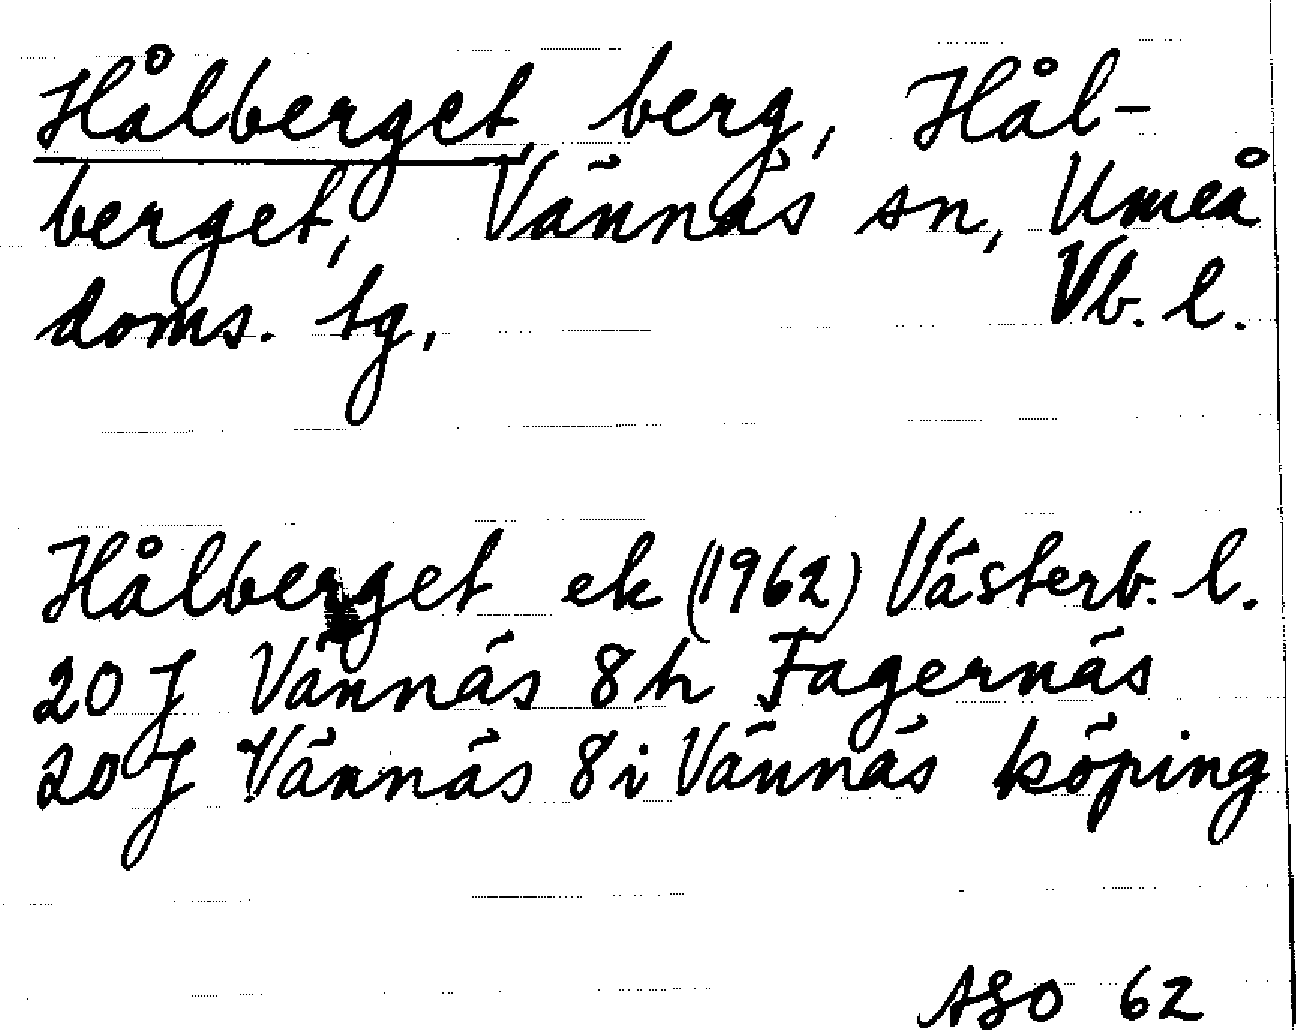 Hålberget, berg, Hål-
berget, Vännäs sn, Umeå
doms. tg, Vb. l.
Hålberget ek (1962) Västerb. l.
20 J Vännäs 8 h Fagernäs
20 J Vännäs 8 i Vännäs köping
ASO 62